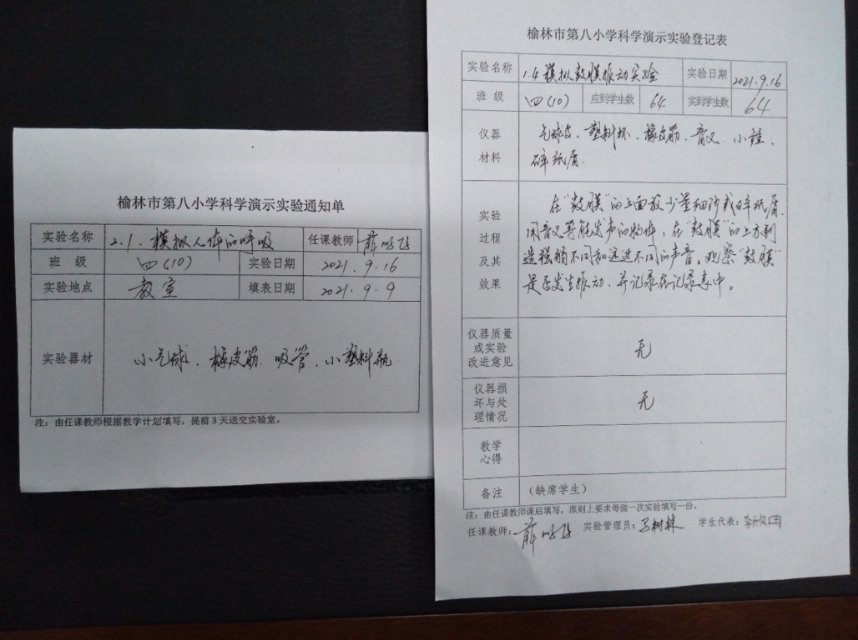 榆林市第八小学科学演示实验通知单
实验名称 2.1. 模拟人体的呼吸 任课教师
班 级 四(10) 实验日期 2021.9.16
实验地点 教室 填表日期 2021.9.9
实验器材 小气球、橡皮筋、吸管、小塑料瓶
注：由任课教师根据教学计划填写，提前3天送交实验室。
榆林市第八小学科学演示实验登记表
实验名称 1.4模拟鼓膜振动实验 实验日期 2021.9.16
班 级 四(10) 应到学生数 64 实到学生数 64
仪器
材料
气球皮、塑料杯、橡皮筋、音叉、小锤、
碎纸屑
实验
过程
及其
效果
在"鼓膜"的上面放少量细沙或碎纸屑，
用音叉等能发声的物体，在"鼓膜"的上方制
造强弱不同和远近不同的声音，观察"鼓膜"
是否发生振动，并记录在记录表中。
仪器质量
或实验
改进意见
无
仪器损
坏与处
理情况
无
教学
心得
备注 （缺席学生）
注：由任课教师课后填写，原则上要求每做一次实验填写一份。
任课教师： 实验管理员： 学生代表：